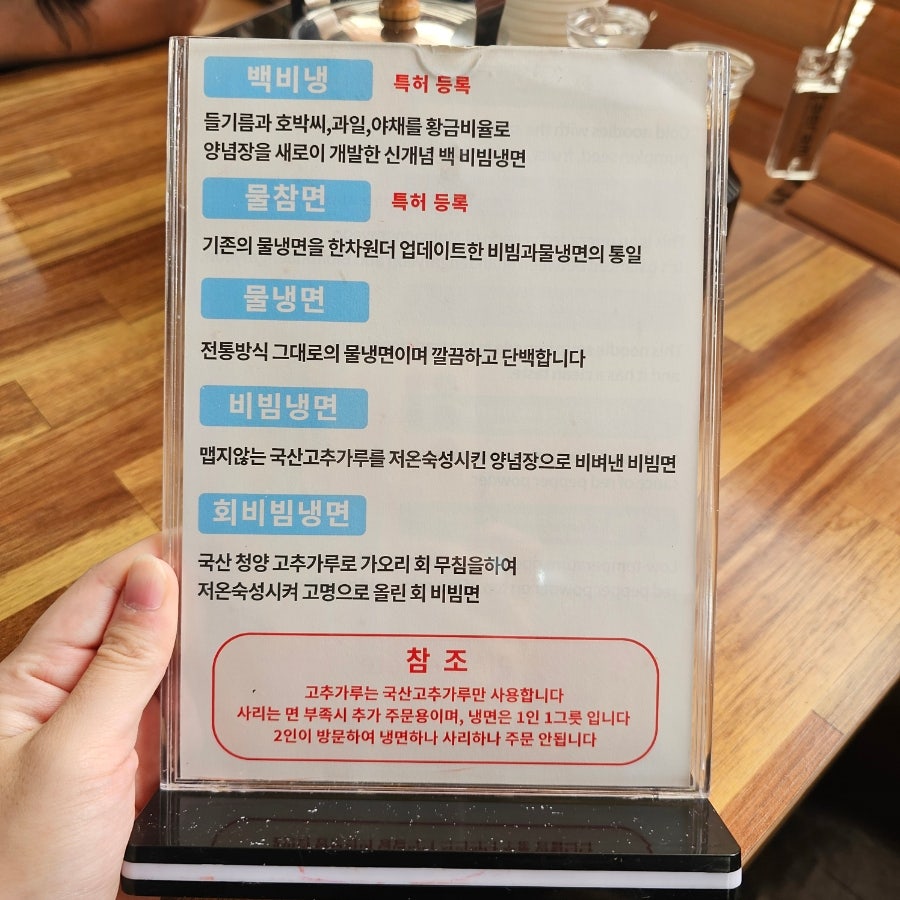 백비냉 특허 등록
들기름과 호박씨,과일,야채를 황금비율로
양념장을 새로이 개발한 신개념 백 비빔냉면
물참면 특허 등록
기존의 물냉면을 한차원더 업데이트한 비빔과물냉면의 통일
물냉면
전통방식 그대로의 물냉면이며 깔끔하고 단백합니다
비빔냉면
맵지않는 국산고추가루를 저온숙성시킨 양념장으로 비벼낸 비빔면
회비빔냉면
국산 청양 고추가루로 가오리 회 무침을하여
저온숙성시켜 고명으로 올린 회 비빔면
참 조
고추가루는 국산고추가루만 사용합니다
사리는 면 부족시 추가 주문용이며, 냉면은 1인 1그릇 입니다
2인이 방문하여 냉면하나 사리하나 주문 안됩니다